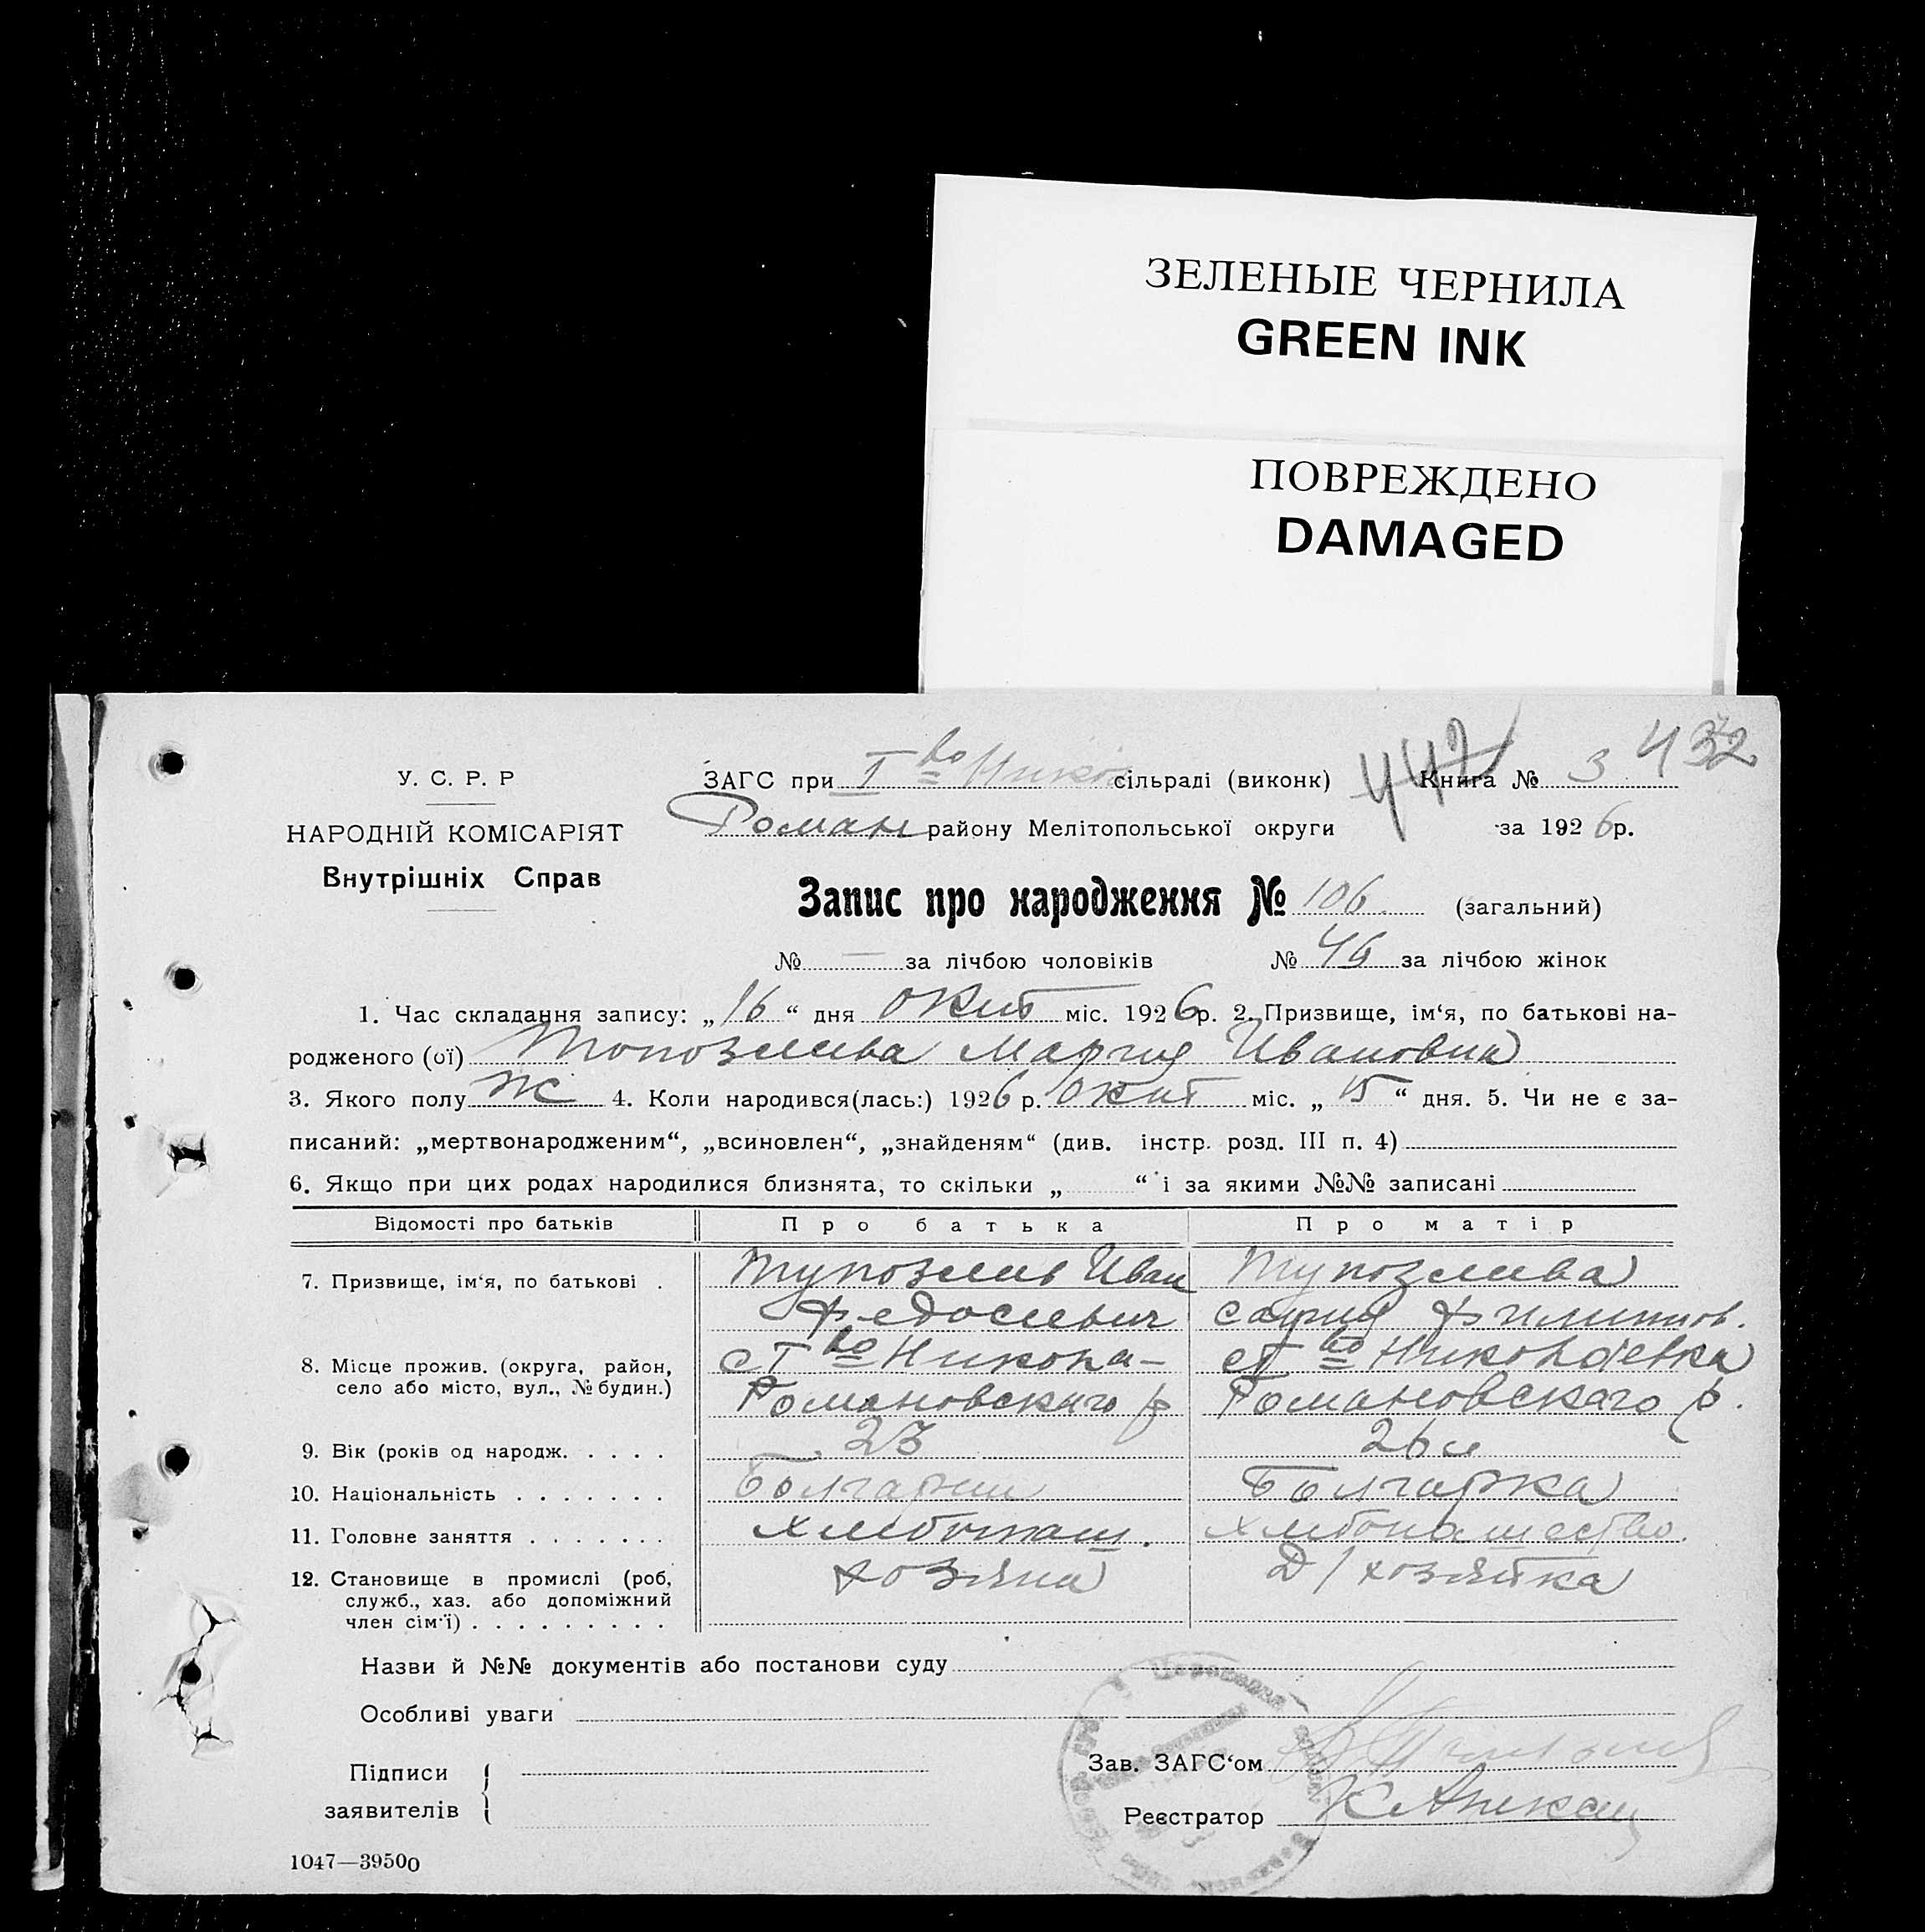 ЗЕЛЕНЫЕ ЧЕРНИЛА
GREEN INK
ПОВРЕЖДЕНО
DAMAGED
432
442
У. С. Р. Р
НАРОДНІЙ КОМІСАРІЯТ
Внутрішніх Справ
ЗАГС при I во Нико сільраді (виконк) Книга № 3
Роман району Мелітопольської округи за 1926р.
Запис про народження № 106 (загальний)
№ — за лічбою чоловіків № 46 за лічбою жінок
1. Час складання запису: „16“ дня окт міс. 1926р. 2. Призвище, ім‘я, по батькові на-
родженого (ої) Топозлива Мария Ивановна
3. Якого полу Ж 4. Коли народився(лась:) 1926 р. окт міс. „15“ дня. 5. Чи не є за-
писаний: „мертвонародженим“, „всиновлен“, „знайденям“ (див. інстр. розд. III п. 4)
6. Якщо при цих родах народилися близнята, то скільки „ “ і за якими №№ записані
Відомості про батьків Про батька Про матір
7. Призвище, ім‘я, по батькові . Тупозлив Иван Тупозлива
Федосиевич
8. Місце прожив. (округа, район, ст во Никола- ст во Николаевка
село або місто, вул., № будин.) Романовскаго р Романовскаго р.
9. Вік (років од народж. . . . . 23 26
10. Національність . . . . . . . Болгарин Болгарка
11. Головне заняття . . . . . . . хлибопаш. хлибопашество
12. Становище в промислі (роб, хозяина Д/хозяйка
служб., хаз. або допоміжний
член сім‘ї) . . . . . . . . .
Назви й №№ документів або постанови суду
Особливі уваги
Підписи
заявителів
Зав. ЗАГС‘ом
Реєстратор
1047—39500